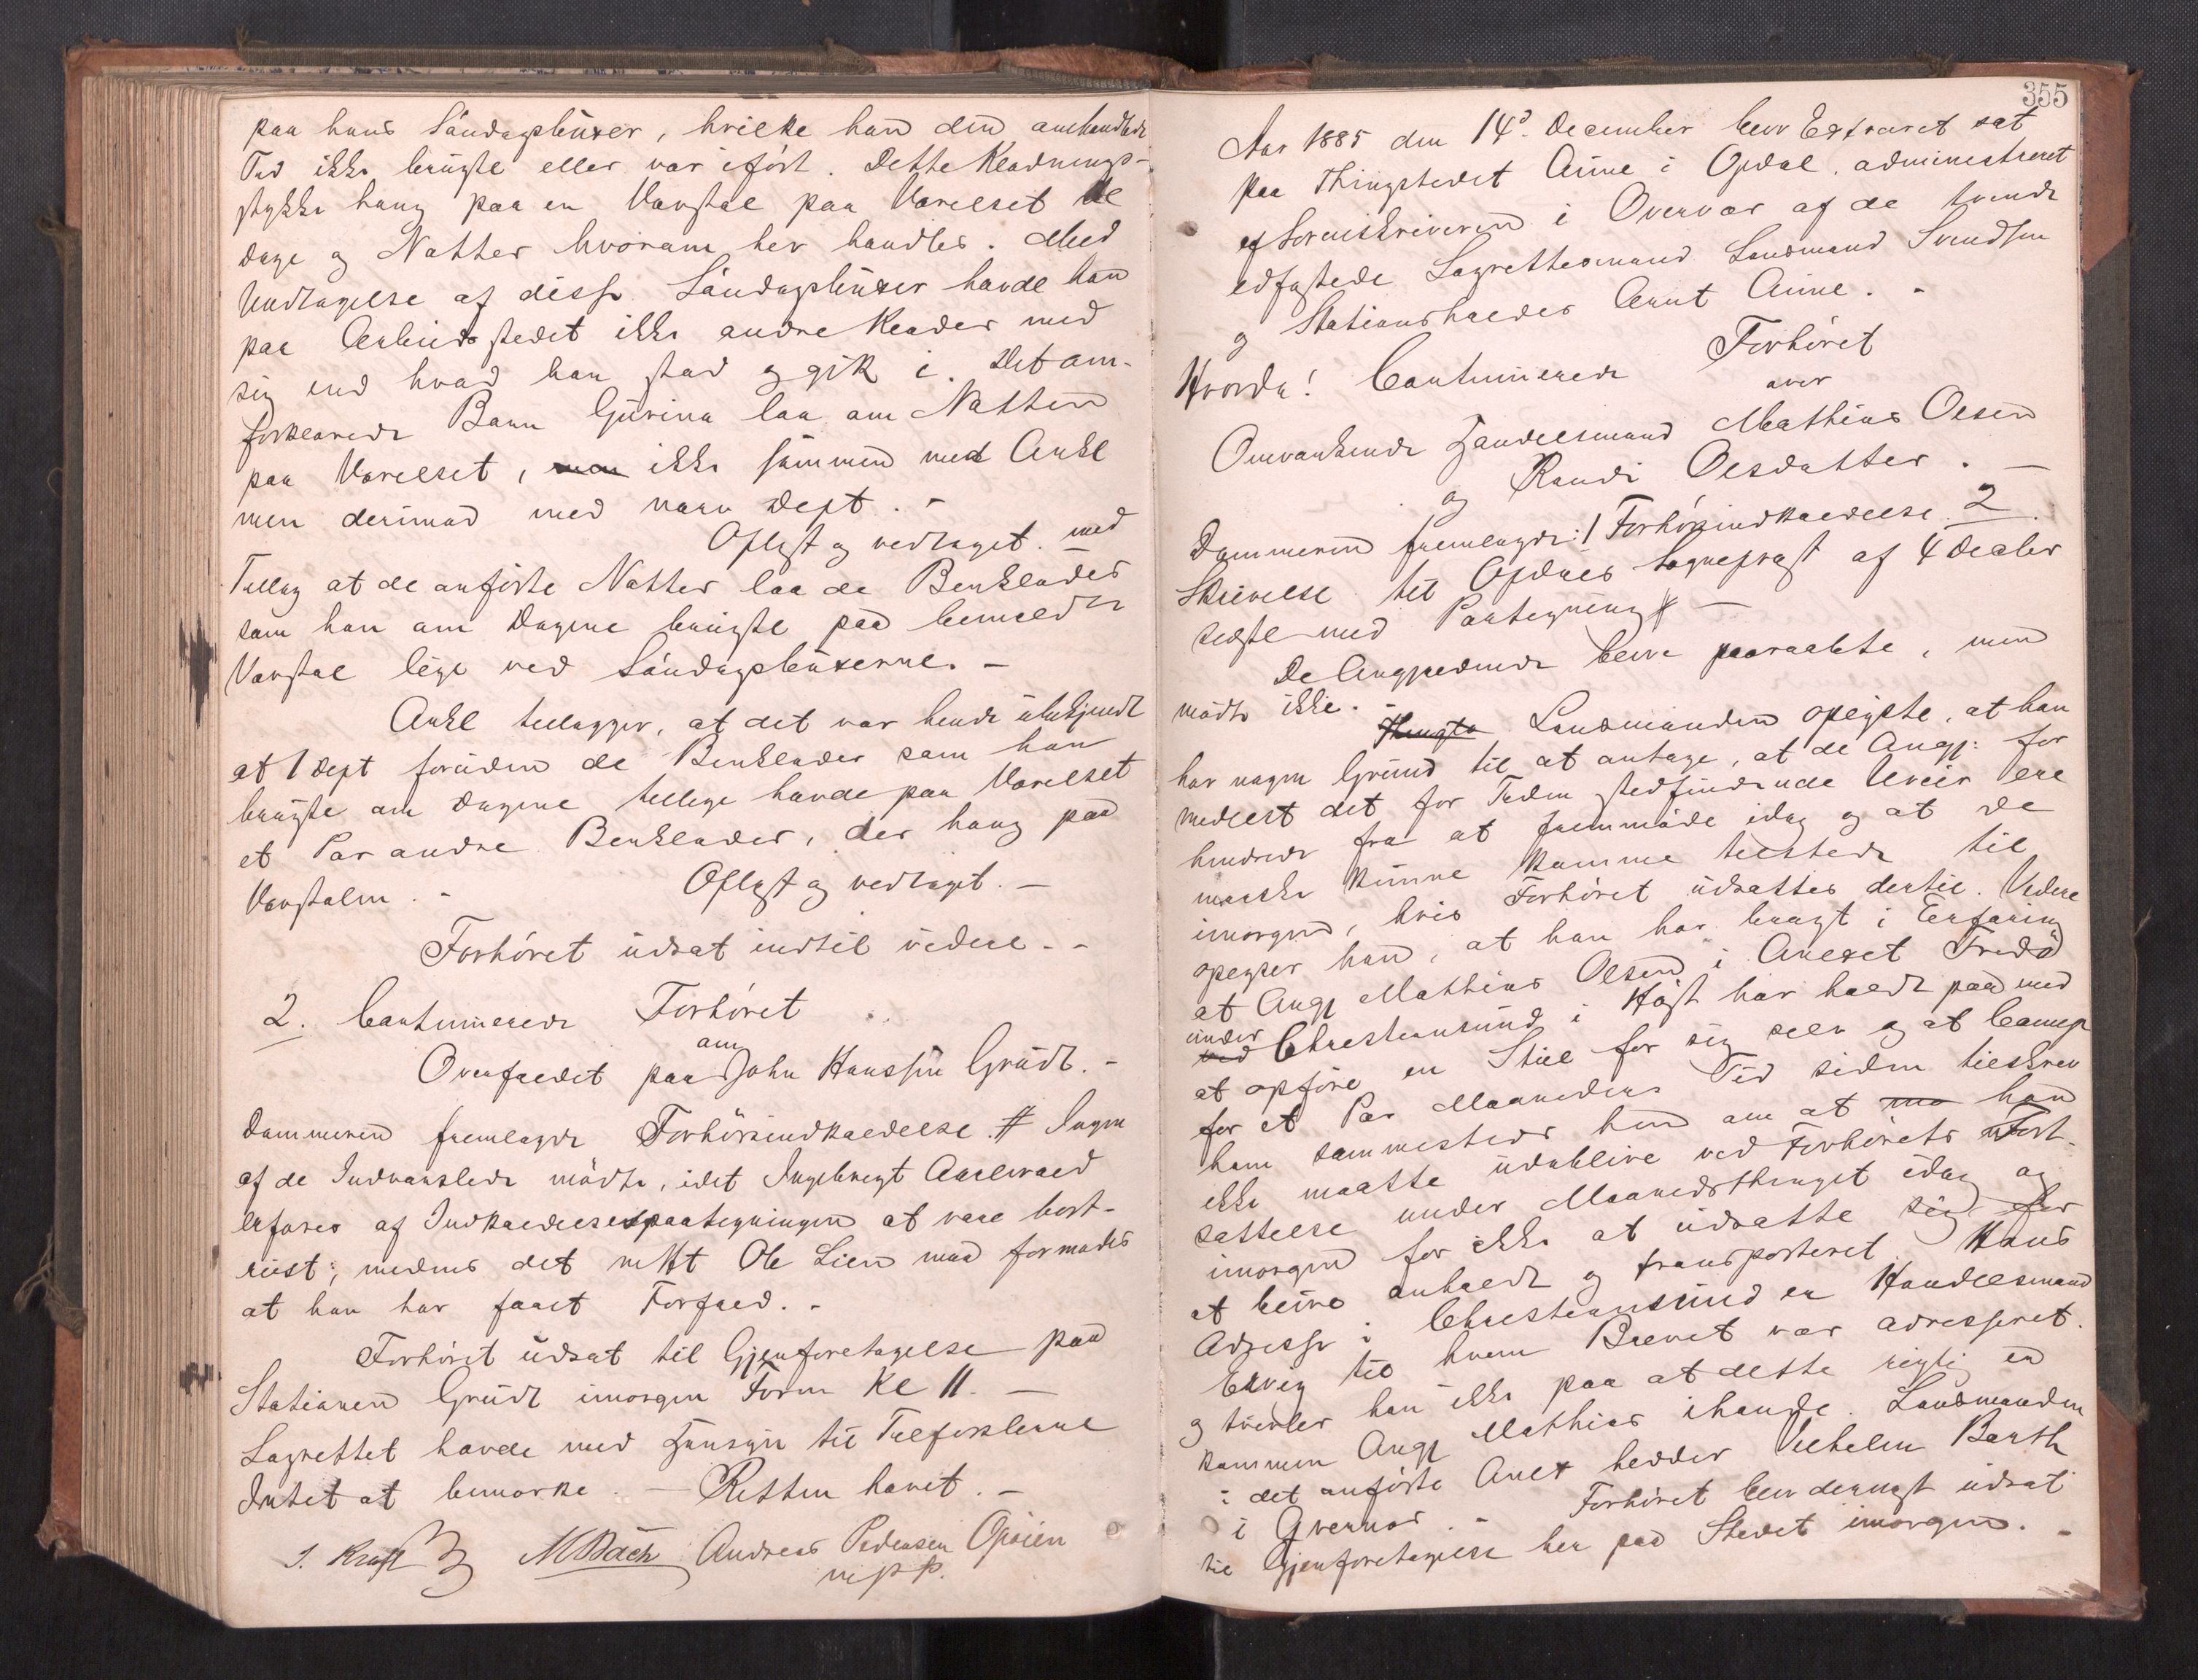 paa hans Söndagsbuxer, hvilke han den omhandlede
Tid ikke brugte eller var iført. Dette Klædnings-
stykke hang paa en Vovstal paa Værelset de
Dage og Nætter hvorom her handles. Med
Undtagelse af disse Söndagsbuxer havde han
paa Arbeidsstedet ikke andre Klæder med
sig end hvad han stod og gik i. Det om-
forklarede Barn Gurina laa om Natten
paa Værelset, men ikke sammen med Ankl
men derimod med narv Dept. -
Oplæst og vedtaget. med
Tillæg at de anførte Nætter laa de Benklæder
som han om Dagene brugte paa bemeldte
Vovstal lige ved Söndagsbuxerne. -
Ankl tillægger, at det var hende ubekjendt
at 1 Dept foruden de Benklæder som han
brugte om Dagene tillige havde paa Værelset
et Par andre Benklæder, der hang paa
Vovstalen. - Oplæst og vedtaget. -
Forhöret udsat indtil videre. -
2. Continuerede Forhöret
om
Overfaldet paa John Hanssen Grudt. -
Dommeren fremlagde Forhörsindkaldelse # Ingen
af de Indvarslede mödte, idet Ingebrigt Aalevald
erfares af Indkaldelsespaategningen at være bort-
reist; medens det mht Ole Lien maa formodes
at han har faaet Forfald. -
Forhöret udsat til Gjenforetagelse paa
Stationen Grudt imorgen Form Kl 11. -
Lagrettet havde med Hensyn til Tilførslerne
Intet at bemærke. - Retten hævet. -
J. Kraft MBach Andreas Pedersen Opöien
mpp.
355
Aar 1885 den 14d. December blev Extraret sat
paa Thingstedet Aune i Opdal, administreret
af Sorenskriveren i Overvær af de tvende
edfæstede Lagrettesmænd Lensmand Svendsen
og Stationsholder Arnt Aune. -
Hvorda! Continuerede Forhöret
over
Omvankende Handelsmand Mathias Olsen
og Randi Olsdatter. -
Dommeren fremlagde: 1 Forhörsindkaldelse. 2
Skrivelse til Opdals Sognepræst af 4 Decbr
sidstl med Paategning # -
De Angjældende blev paaraabte, men
mödte ikke. -
Thingta Lensmanden oplyste, at han
har nogen Grund til at antage, at de Angj: for
medelst det for Tiden stedfindende Uveir ere
hindrede fra at fremmöde idag og at de
maaske kunne komme tilstede til
imorgen, hvis Forhöret udsattes dertil. Videre
oplyser han, at han har bragt i Erfaring
at Angj Mathias Olsen i Anexet Fredö
under
ved Christiansund i Höst har holdt paa med
at opføre en Stue for sig selv og at Comp
for et Par Maaneders Tid siden tilskrev
ham sammesteds hen om at ma han
ikke maatte udeblive ved Forhörets Fort-
sættelse under Maanedsthinget idag og
imorgen for ikke at udsætte sig for
at blive anholdt og transporteret. Hans
Adresse i Christiansund er Handelsmand
Elvig til hvem Brevet var adresseret.
og tvivler han ikke paa at dette rigtig er
kommen Angj Mathias ihænde. Lensmanden
i det anførte Anex hedder Vilhelm Barth
i Qvernes. - Forhöret blev dernæst udsat
til Gjenforetagelse her paa Stedet imorgen. -